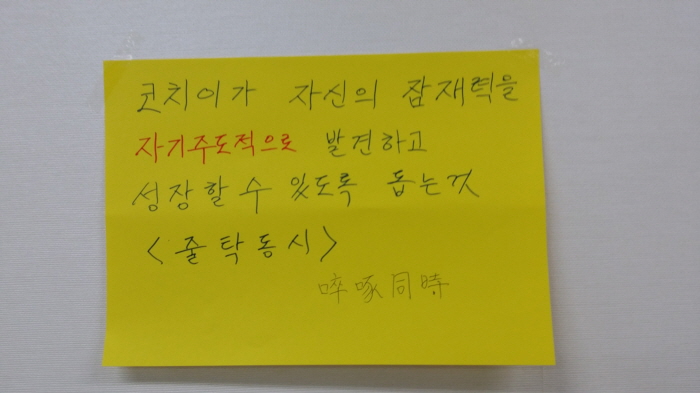 코치이가 자신의 잠재력을
자기주도적으로 발견하고
성장할 수 있도록 돕는것
<줄탁동시>
啐啄同時